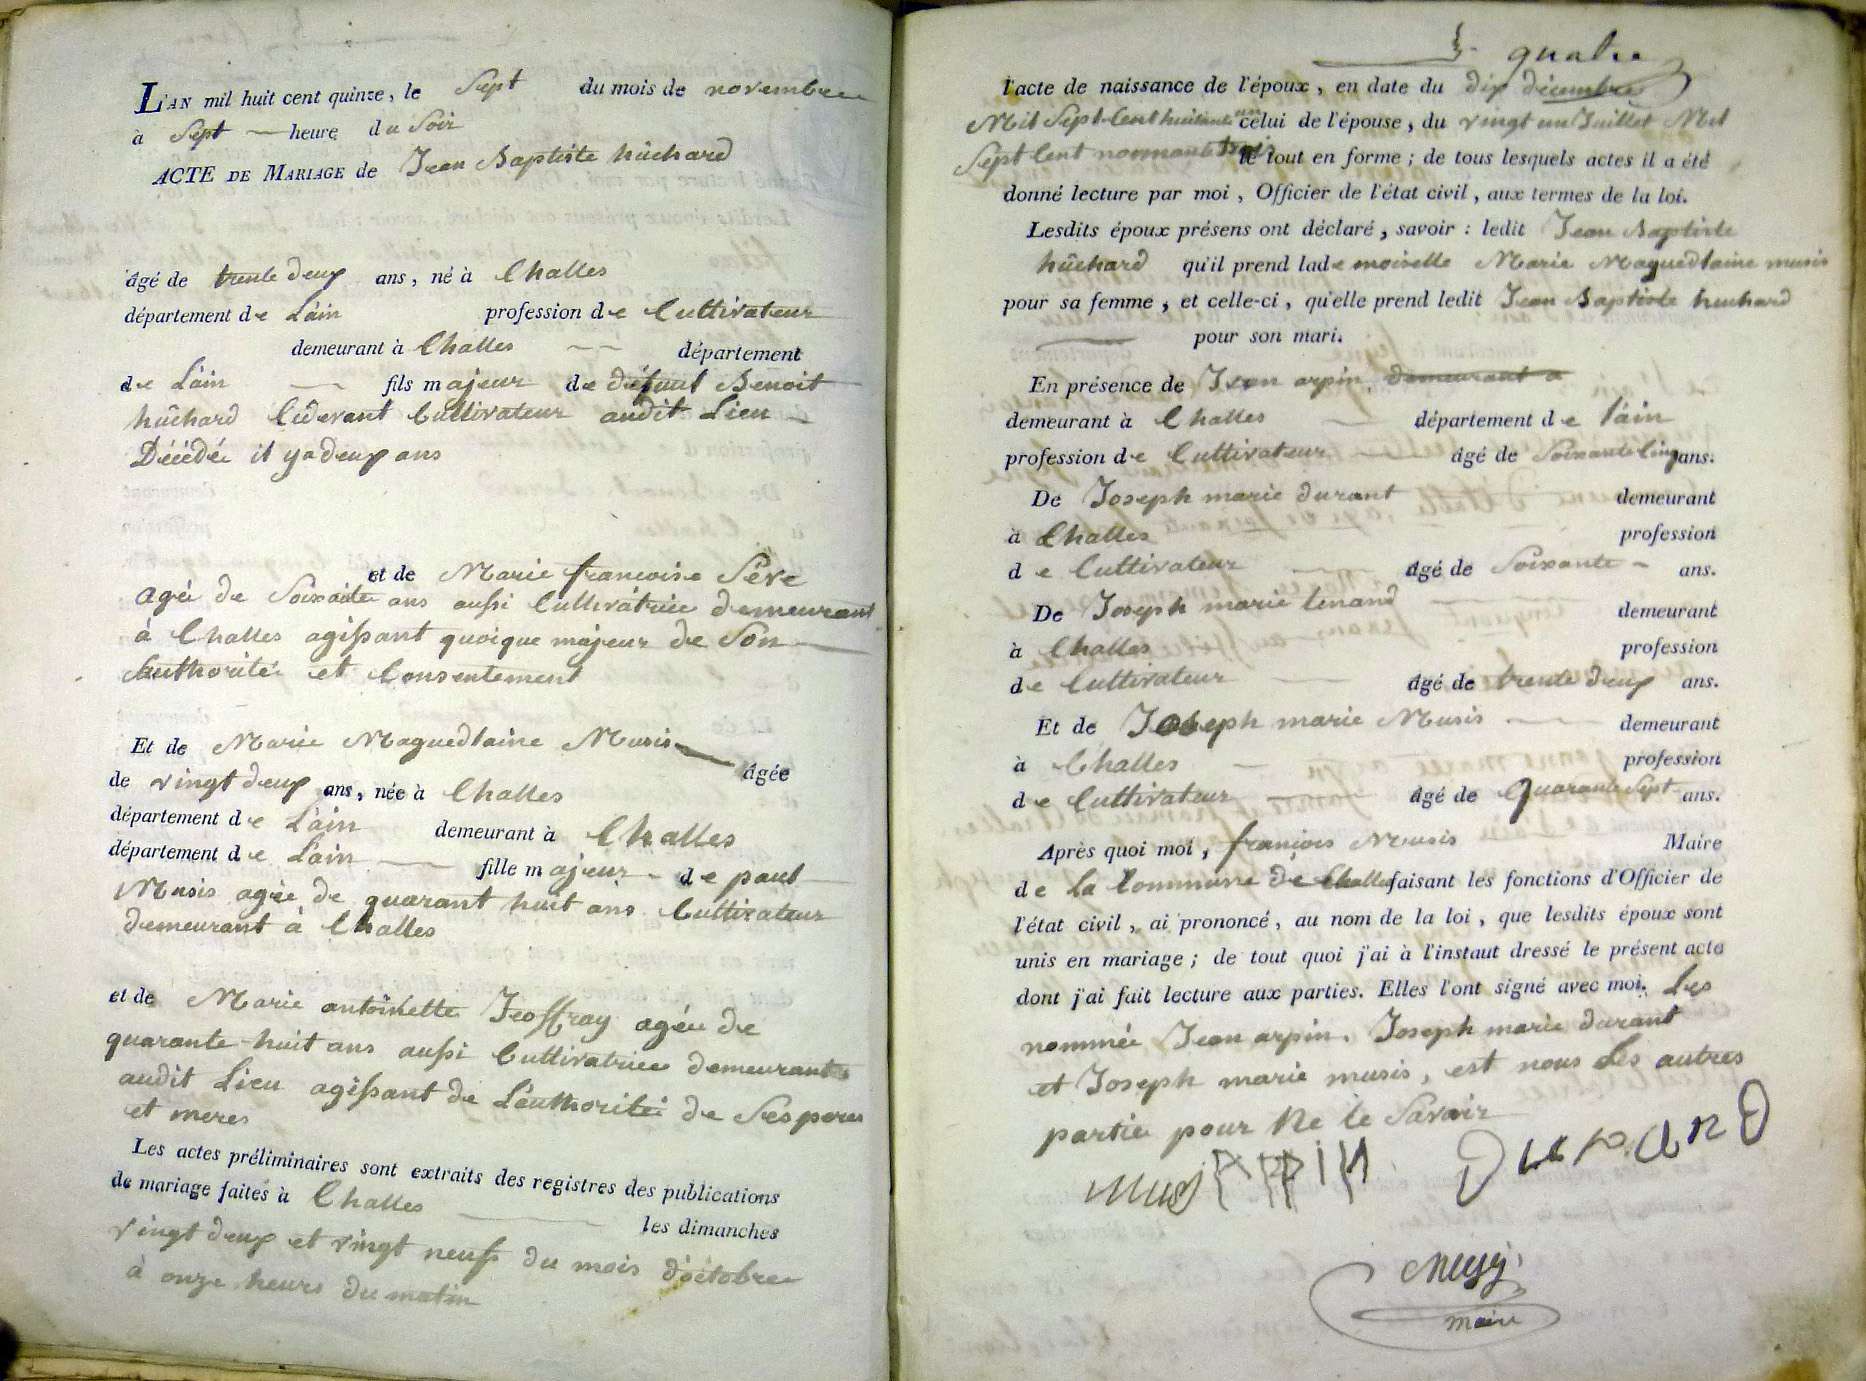 L'AN mil huit cent quinze, le Sept du mois de novembre
à Sept heure du Soir
ACTE DE MARIAGE de Jean Baptiste hûchard
âgé de trente deux ans, né à Challes
département de L'ain profession de Cultivateur
demeurant à Challes département
de L'ain fils majeur de défunt Benoit
hûchard Cidevant Cultivateur audit Lieu
Décédé il ya deux ans
et de Marie francoise Sêve
agée de Soixante ans aussi Cultivatrice demeurant
à Challes agissant quoique majeur de Son
Authorité et Consentement
Et de Marie Maguedlaine Musis âgée
de vingt deux ans, née à Challes
département de L'ain demeurant à Challes
département de L'ain fille majeur de paul
Musis agée de quarant huit ans Cultivateur
demeurant à Challes
et de Marie antoinette Jeoffray agée de
quarante huit ans aussi Cultivatrice demeurant
audit Lieu agissant de L'authorité de Ses peres
et meres
Les actes préliminaires sont extraits des registres des publications
de mariage faites à Challes les dimanches
vingt deux et vingt neuf du mois d'octobre
à onze heure du matin
quatre
l'acte de naissance de l'époux, en date du dix décembre
Mil Sept Cent huitante un celui de l'épouse, du vingt un Juillet Mil
Sept Cent nonnante trois le tout en forme; de tous lesquels actes il a été
donné lecture par moi, Officier de l'état civil, aux termes de la loi.
Lesdits époux présens ont déclaré, savoir: ledit Jean Baptiste
hûchard qu'il prend lade moiselle Marie Maguedlaine musis
pour sa femme, et celle-ci, qu'elle prend ledit Jean Baptiste huchard
pour son mari.
En présence de Jean arpin, demeurant a
demeurant à Challes département de l'ain
profession de Cultivateur âgé de Soixante Cinq ans.
De Joseph marie durant demeurant
à Challes profession
de Cultivateur âgé de Soixante ans.
De Joseph marie tenand demeurant
à Challes profession
de Cultivateur âgé de trente deux ans.
Et de Joseph marie Musis demeurant
à Challes profession
de Cultivateur âgé de Quarante Sept ans.
Après quoi moi, françois Musis Maire
de la Commune de Challes faisant les fonctions d'Officier de
l'état civil, ai prononcé, au nom de la loi, que lesdits époux sont
unis en mariage; de tout quoi j'ai à l'instant dressé le présent acte
dont j'ai fait lecture aux parties. Elles l'ont signé avec moi. Les
nommée Jean arpin, Joseph marie durant
et Joseph marie musis, est nous Les autres
partie pour Ne le Savoir
Musy ARPIN DURAND
Musy
maire